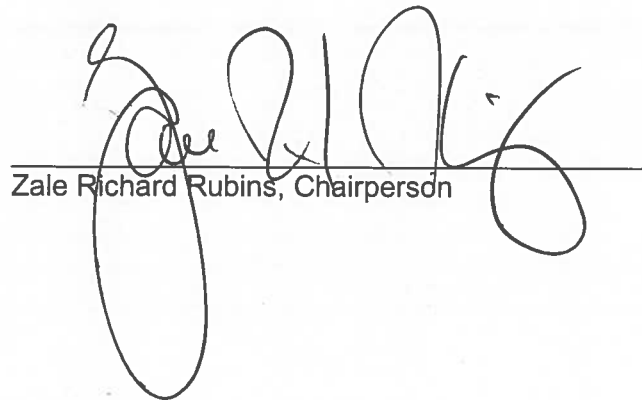 Zale Richard Rubins, Chairperson